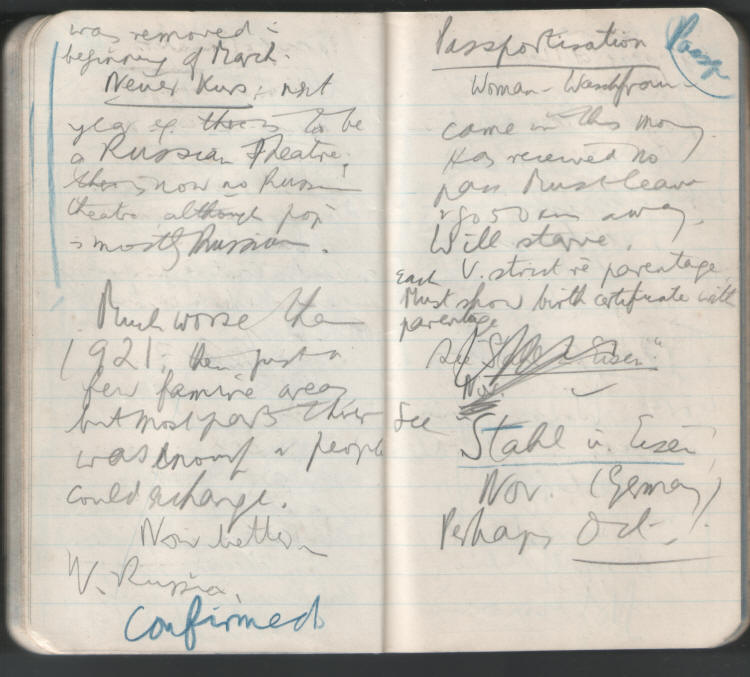 was removed in
beginning of March.
Never Kurs; next
year eg. there is to be
a Russian Theatre;
there is now no Russian
theatre although pop
is mostly Russian.
Much worse than
1921; then just a
few famine areas
but most parts there
was enough & people
could exchange.
Now better in
W. Russia.
Confirmed
Passportisation
Passp
Woman - Waschfrau -
came in this morg.
Has received no
pass Must leave
& go 50 km away.
Will starve.
Each V. strict re parentage
Must show birth certificate with
parentage
See "Stahl u. Eisen"
Nov.
See Stahl u. Eisen
Nov. (Germany)
Perhaps Oct.